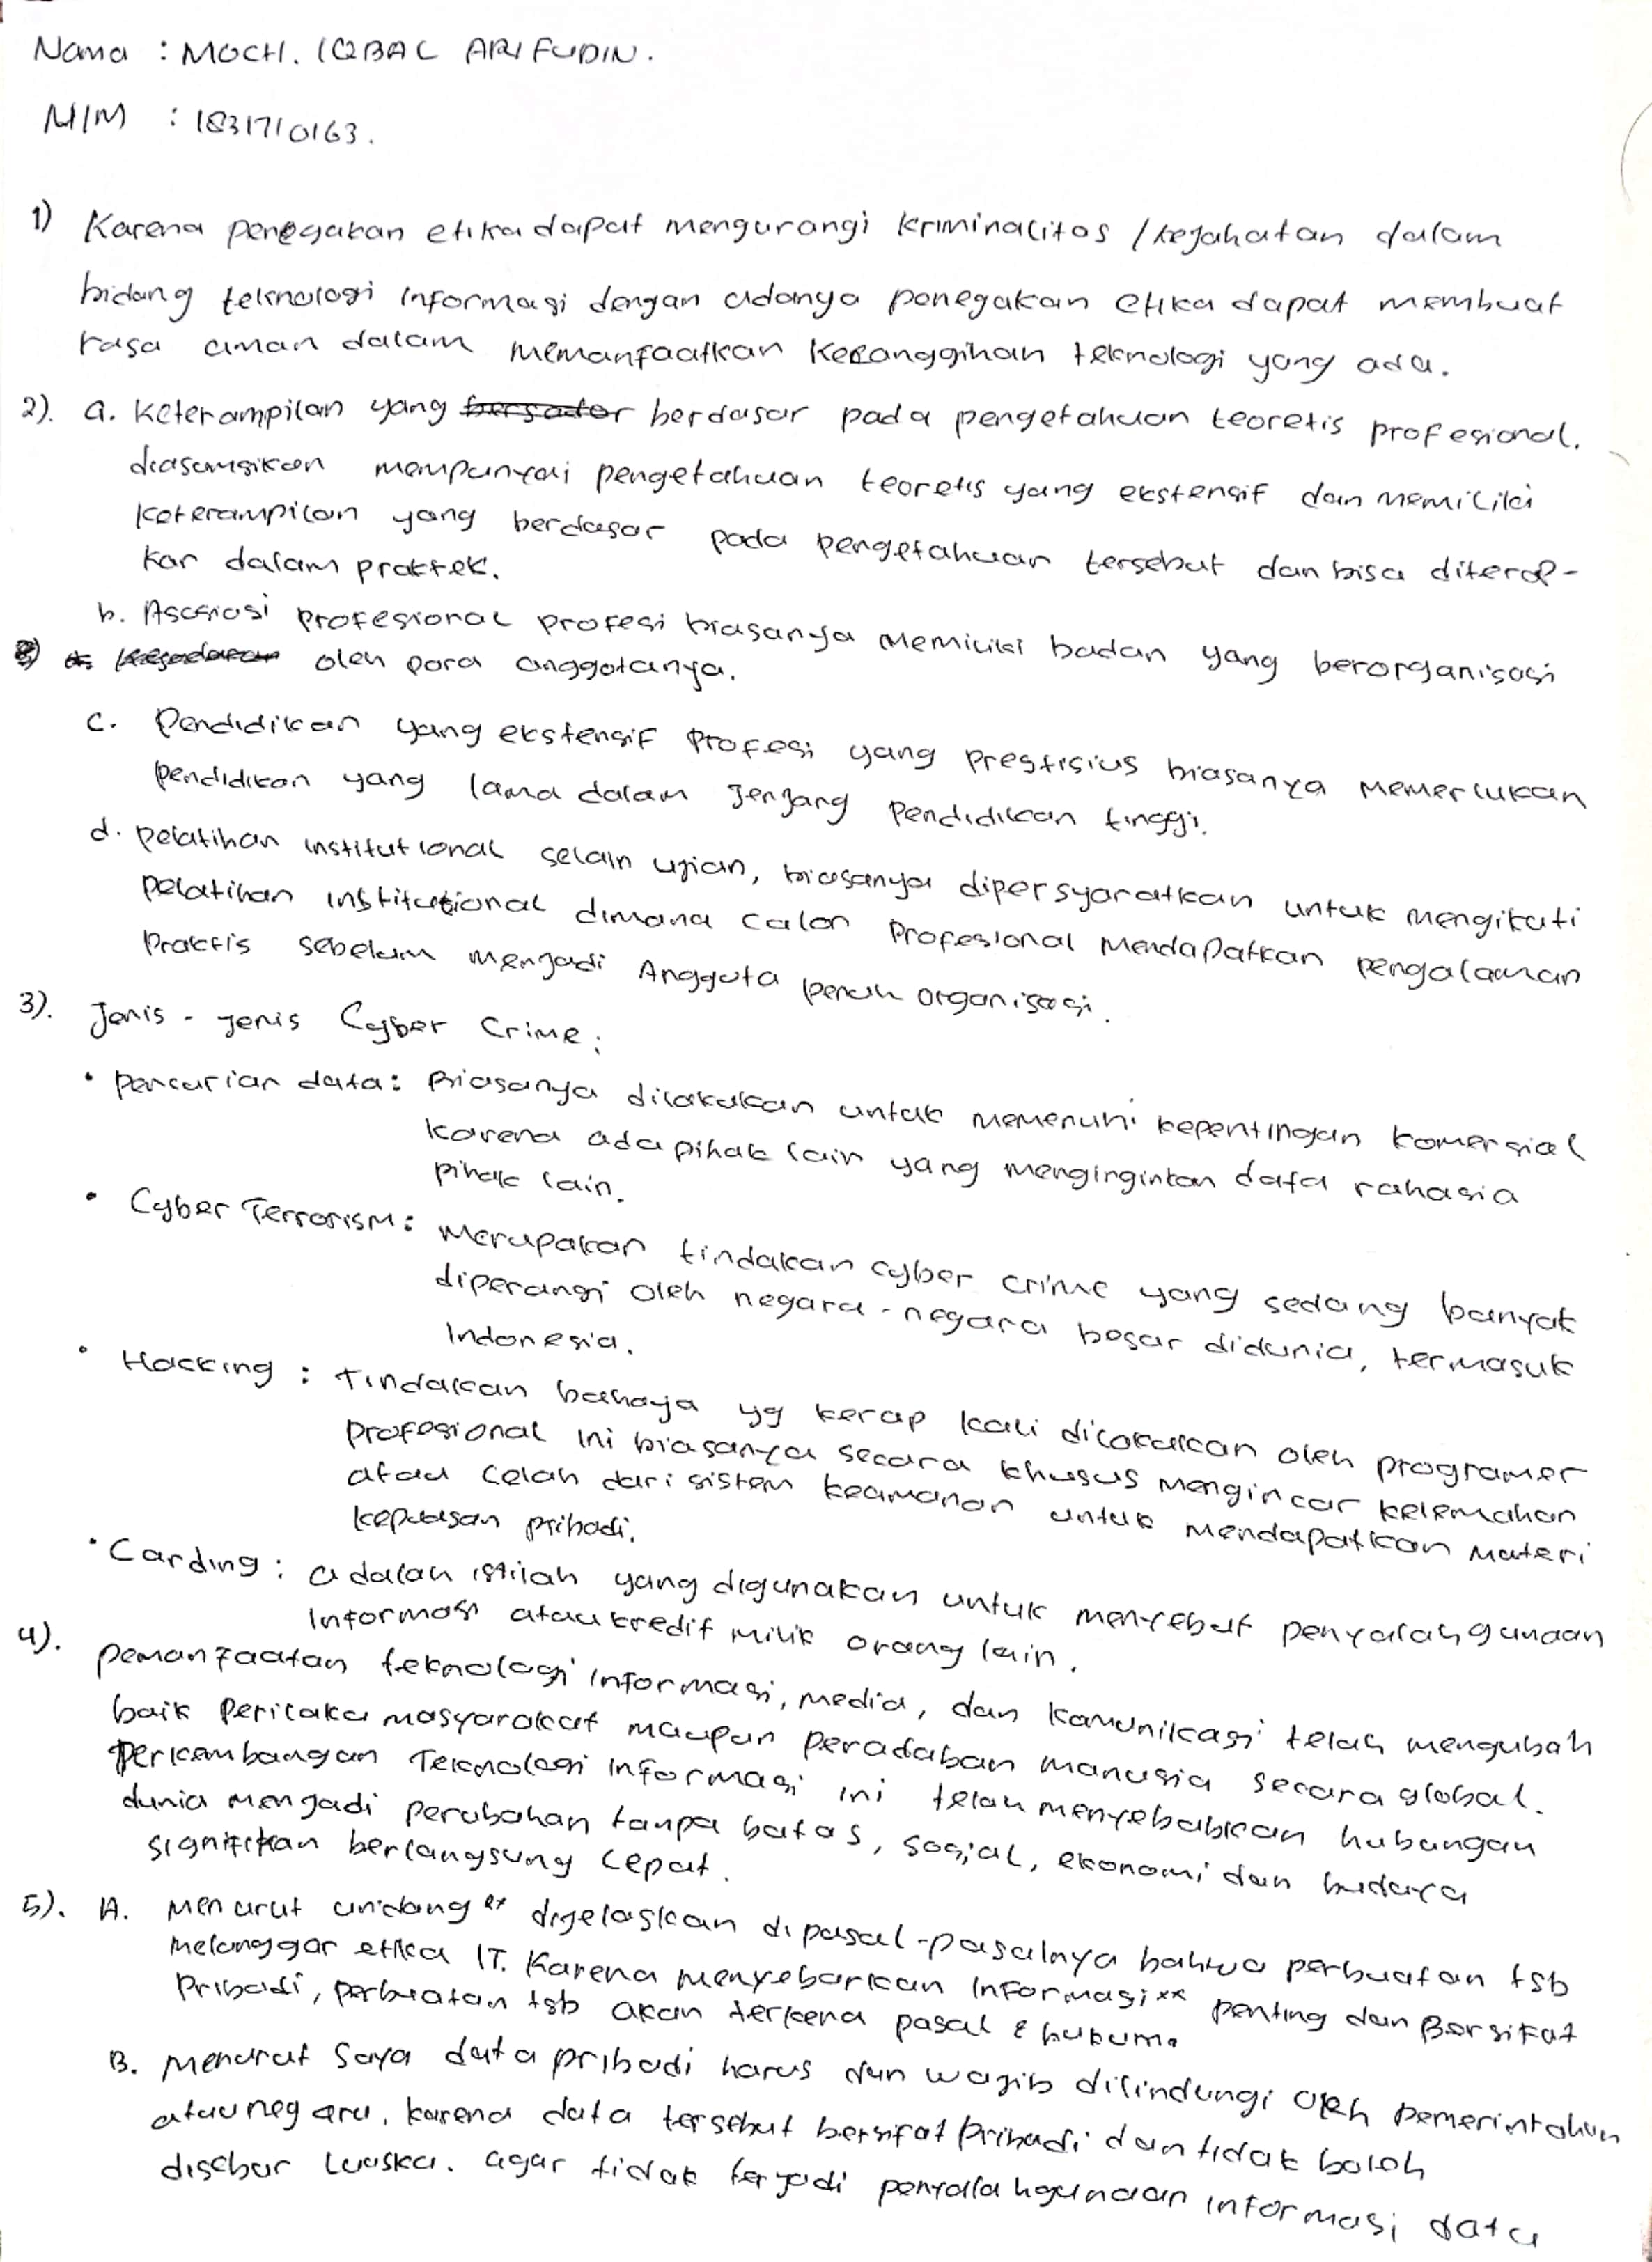 Nama : MOCH. IQBAL ARIFUDIN.
NIM : 1831710163.
1) Karena penegakan etika dapat mengurangi kriminalitas / kejahatan dalam
bidang teknologi informasi dengan adanya penegakan etika dapat membuat
rasa aman dalam memanfaatkan kecanggihan teknologi yang ada.
2). a. Keterampilan yang berdasar pada pengetahuan teoretis profesional.
diasumsikan mempunyai pengetahuan teoretis yang ekstensif dan memiliki
keterampilan yang berdasar pada pengetahuan tersebut dan bisa diterap-
kar dalam praktek.
b. Asosiasi profesional profesi biasanya memiliki badan yang berorganisasi
oleh para anggotanya.
c. Pendidikan yang ekstensif Profesi yang prestisius biasanya memerlukan
pendidikan yang lama dalam jenjang pendidikan tinggi.
d. pelatihan institutional selain ujian, biasanya dipersyaratkan untuk mengikuti
pelatihan institutional dimana calon profesional mendapatkan pengalaman
praktis sebelum menjadi Anggota penuh organisasi.
3). Jenis - jenis Cyber Crime :
• pencurian data : Biasanya dilakukan untuk memenuhi kepentingan komersial
karena ada pihak lain yang menginginkan data rahasia
pihak lain.
• Cyber Terrorism : Merupakan tindakan cyber crime yang sedang banyak
diperangi oleh negara - negara besar didunia, termasuk
Indonesia.
• Hacking : Tindakan bahaya yg kerap kali dilakukan oleh programer
profesional ini biasanya secara khusus mengincar kelemahan
atau celah dari sistem keamanan untuk mendapatkan materi
kepuasan pribadi.
• Carding : adalah istilah yang digunakan untuk menyebut penyalahgunaan
informasi atau kredit milik orang lain.
4). pemanfaatan teknologi informasi, media, dan komunikasi telah mengubah
baik perilaku masyarakat maupun peradaban manusia secara global.
Perkembangan Teknologi informasi ini telah menyebabkan hubungan
dunia menjadi perubahan tanpa batas, sosial, ekonomi dan budaya
signifikan berlangsung cepat.
5). A. Menurut undang ** dijelaskan dipasal-pasalnya bahwa perbuatan tsb
melanggar etika IT. Karena menyebarkan informasi ** penting dan Bersifat
Pribadi, perbuatan tsb akan terkena pasal & hukum.
B. Menurut saya data pribadi harus dan wajib dilindungi oleh pemerintahan
atau negara, karena data tersebut bersifat pribadi dan tidak boleh
disebar luaska. agar tidak terjadi penyalahgunaan informasi data